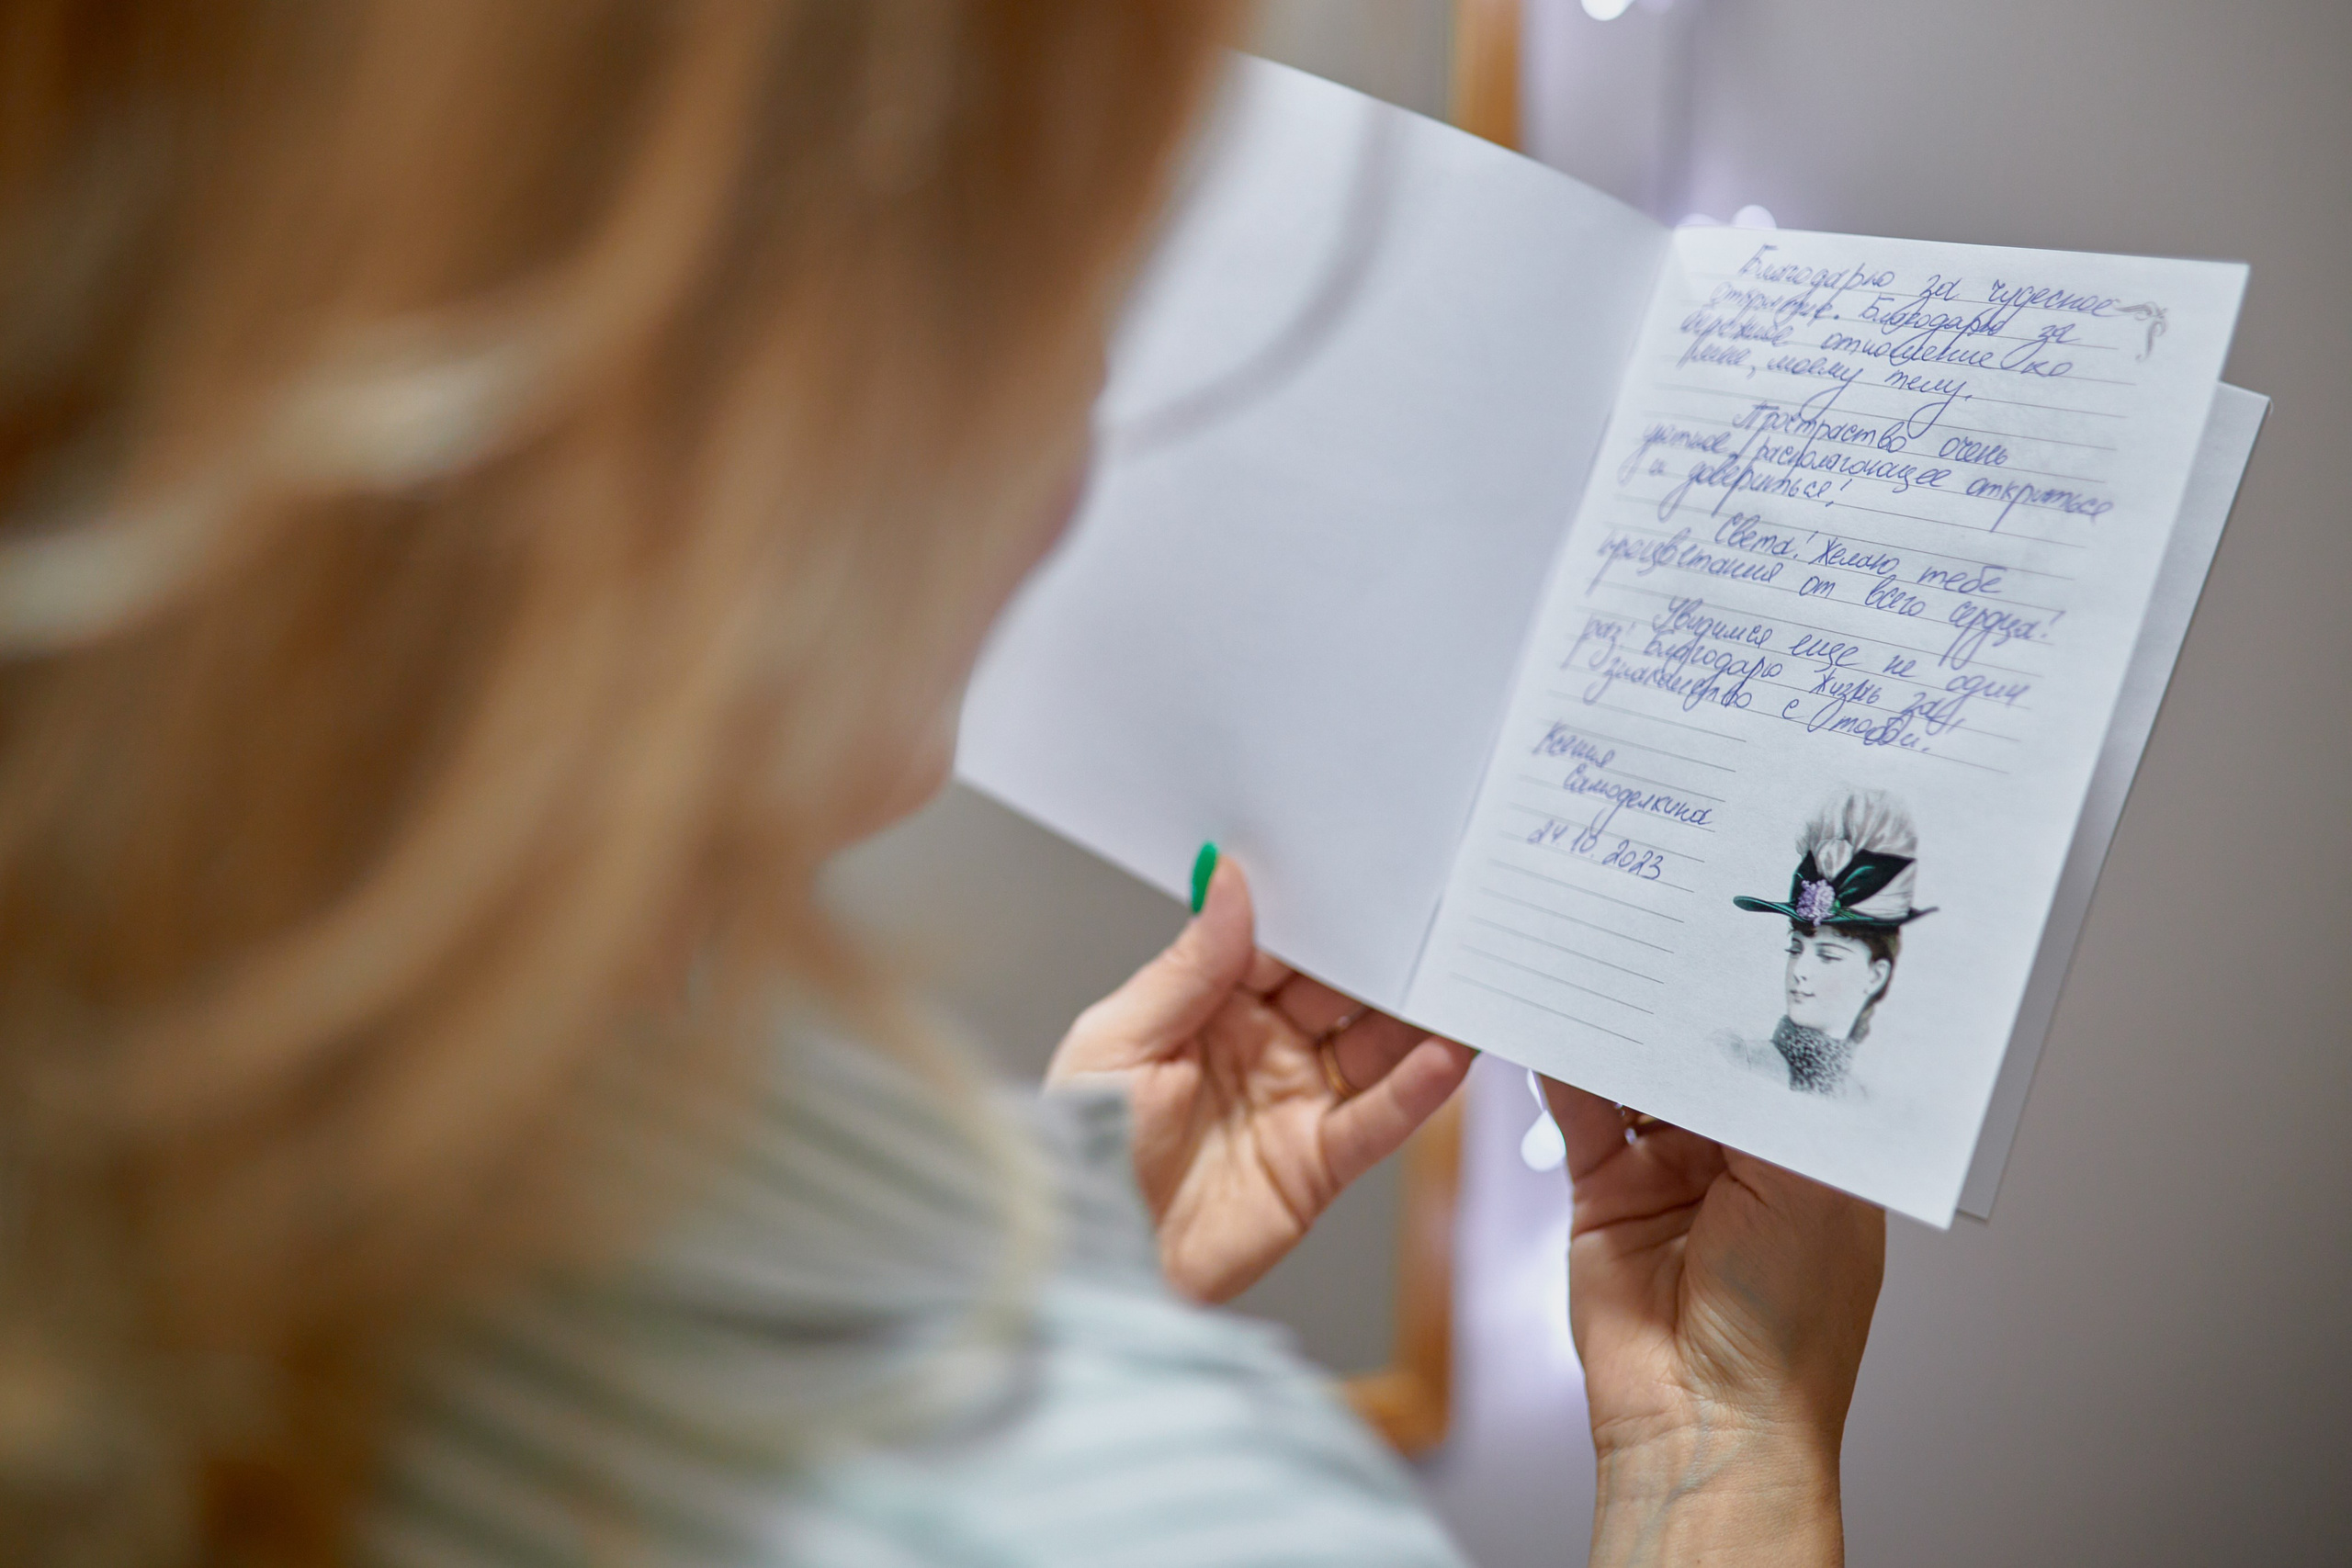 Благодарю за чудесное
открытие. Благодарю за
бережное отношение ко
мне, моему телу.
Простраство очень
уютное, располагающее открыться
и довериться!
Света! Желаю тебе
процветания от всего сердца!
Увидимся еще не один
раз! Благодарю Жизнь за
знакомство с тобой.
Ксения
Самоделкина
24.10.2023